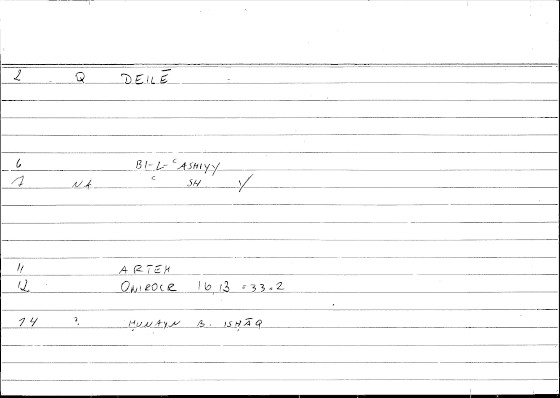 2 Q DEILĒ
6 BI-L-ʿASHIYY
7 NA ʿ SH Y
11 ARTEM
12 ONIROCR 16,13 = 33.2
14 ? ḤUNAYN B. ISḤĀQ